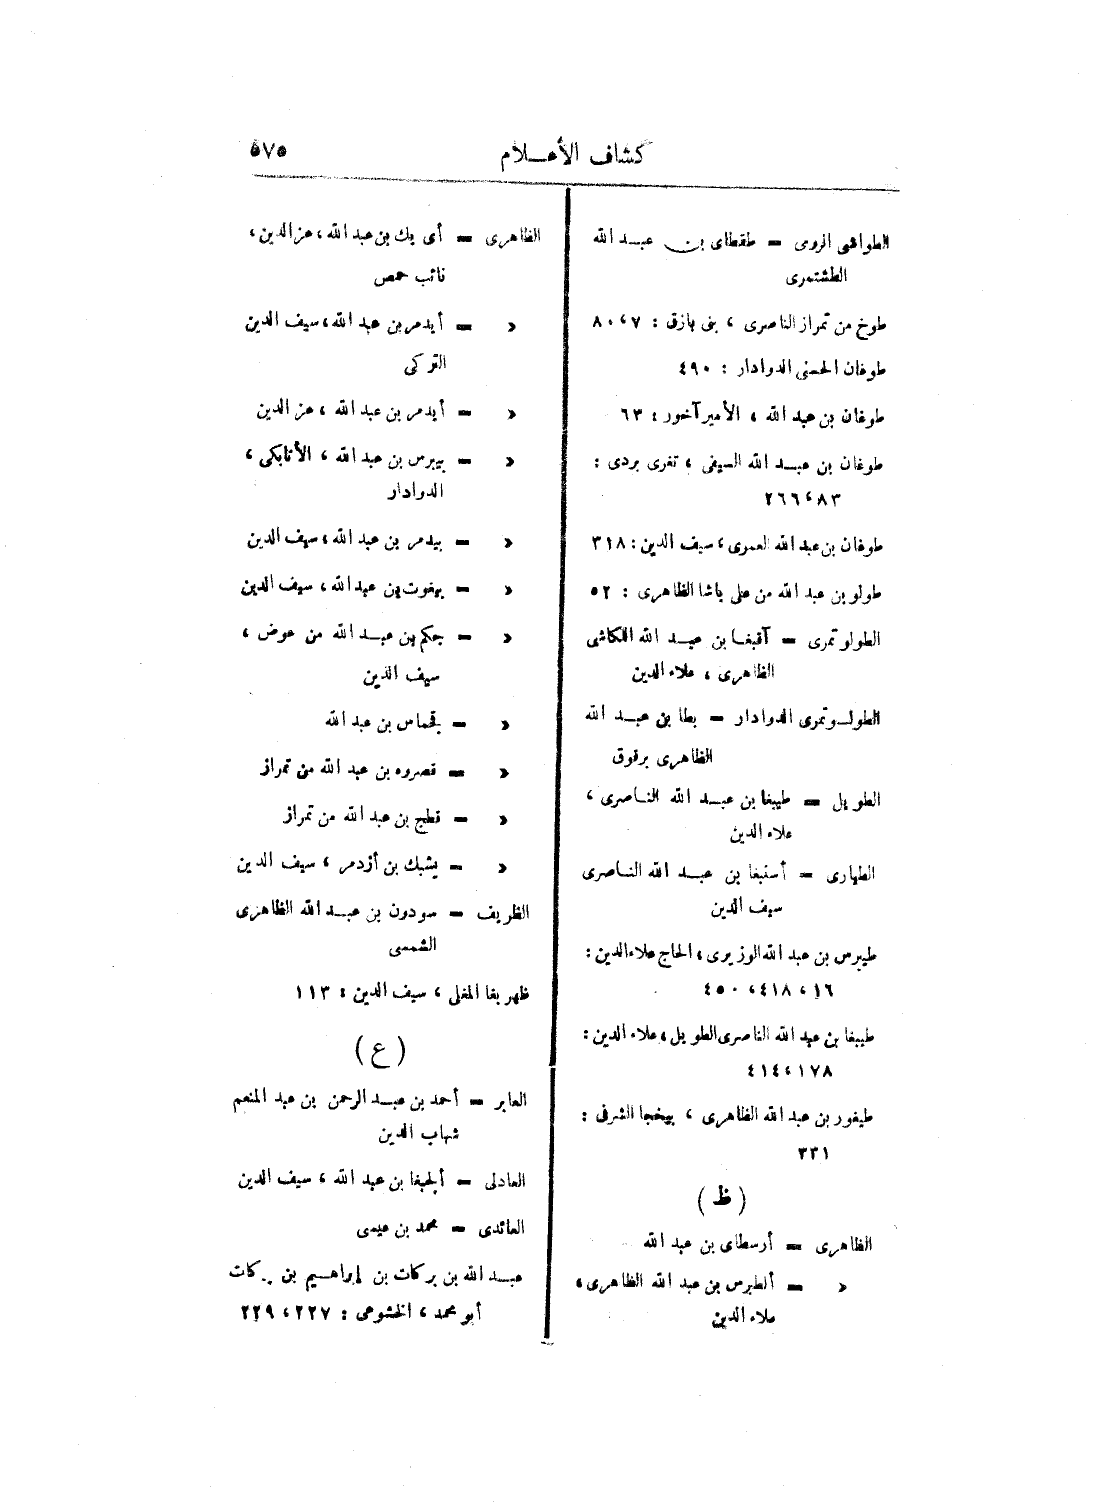 كشاف الأعلام
٥٧٥
الطواشى الرومى = طقطاى بن عبد الله
الطشتمرى
طوخ من تمراز الناصرى ، بنى بازق : ٧ ، ٨٠
طوغان الحسنى الدوادار : ٤٩٠
طوغان بن عبد الله ، الأمير آخور : ٦٣
طوغان بن عبد الله السيفى ، تغرى بردى :
٨٣ ، ٢٦٦
طوغان بن عبد الله العمرى ، سيف الدين : ٣١٨
طولو بن عبد الله من على باشا الظاهرى : ٥٢
الطولوتمرى = آقبغا بن عبد الله اللكاشى
الظاهرى ، علاء الدين
الطولوتمرى الدوادار = بطا بن عبد الله
الظاهرى برقوق
الطويل = طيبغا بن عبد الله الناصرى ،
علاء الدين
الطيارى = أسنبغا بن عبد الله الناصرى
سيف الدين
طيبرس بن عبد الله الوزيرى ، الحاج علاء الدين :
١٦ ، ٤١٨ ، ٤٥٠
طيبغا بن عبد الله الناصرى الطويل ، علاء الدين :
١٧٨ ، ٤١٤
طيفور بن عبد الله الظاهرى ، بيخجا الشرفى :
٣٣١
( ظ )
الظاهرى = أرسطاى بن عبد الله
» = ألطبرس بن عبد الله الظاهرى ،
علاء الدين
الظاهرى = أى بك بن عبد الله ، عز الدين ،
نائب حمص
» = أيدمر بن عبد الله ، سيف الدين
التركى
» = أيدمر بن عبد الله ، عز الدين
» = بيبرس بن عبد الله ، الأتابكى ،
الدوادار
» = بيدمر بن عبد الله ، سيف الدين
» = بيغوت بن عبد الله ، سيف الدين
» = جكم بن عبد الله من عوض ،
سيف الدين
» = قجماس بن عبد الله
» = قصروه بن عبد الله من تمراز
» = قطج بن عبد الله من تمراز
» = يشبك بن أزدمر ، سيف الدين
الظريف = سودون بن عبد الله الظاهرى
الشمسى
ظهر بغا المغلى ، سيف الدين : ١١٣
( ع )
العابر = أحمد بن عبد الرحمن بن عبد المنعم
شهاب الدين
العادلى = ألجبغا بن عبد الله ، سيف الدين
العائدى = محمد بن عيسى
عبد الله بن بركات بن إبراهيم بن بركات
أبو محمد ، الخشوعى : ٢٢٧ ، ٢٢٩